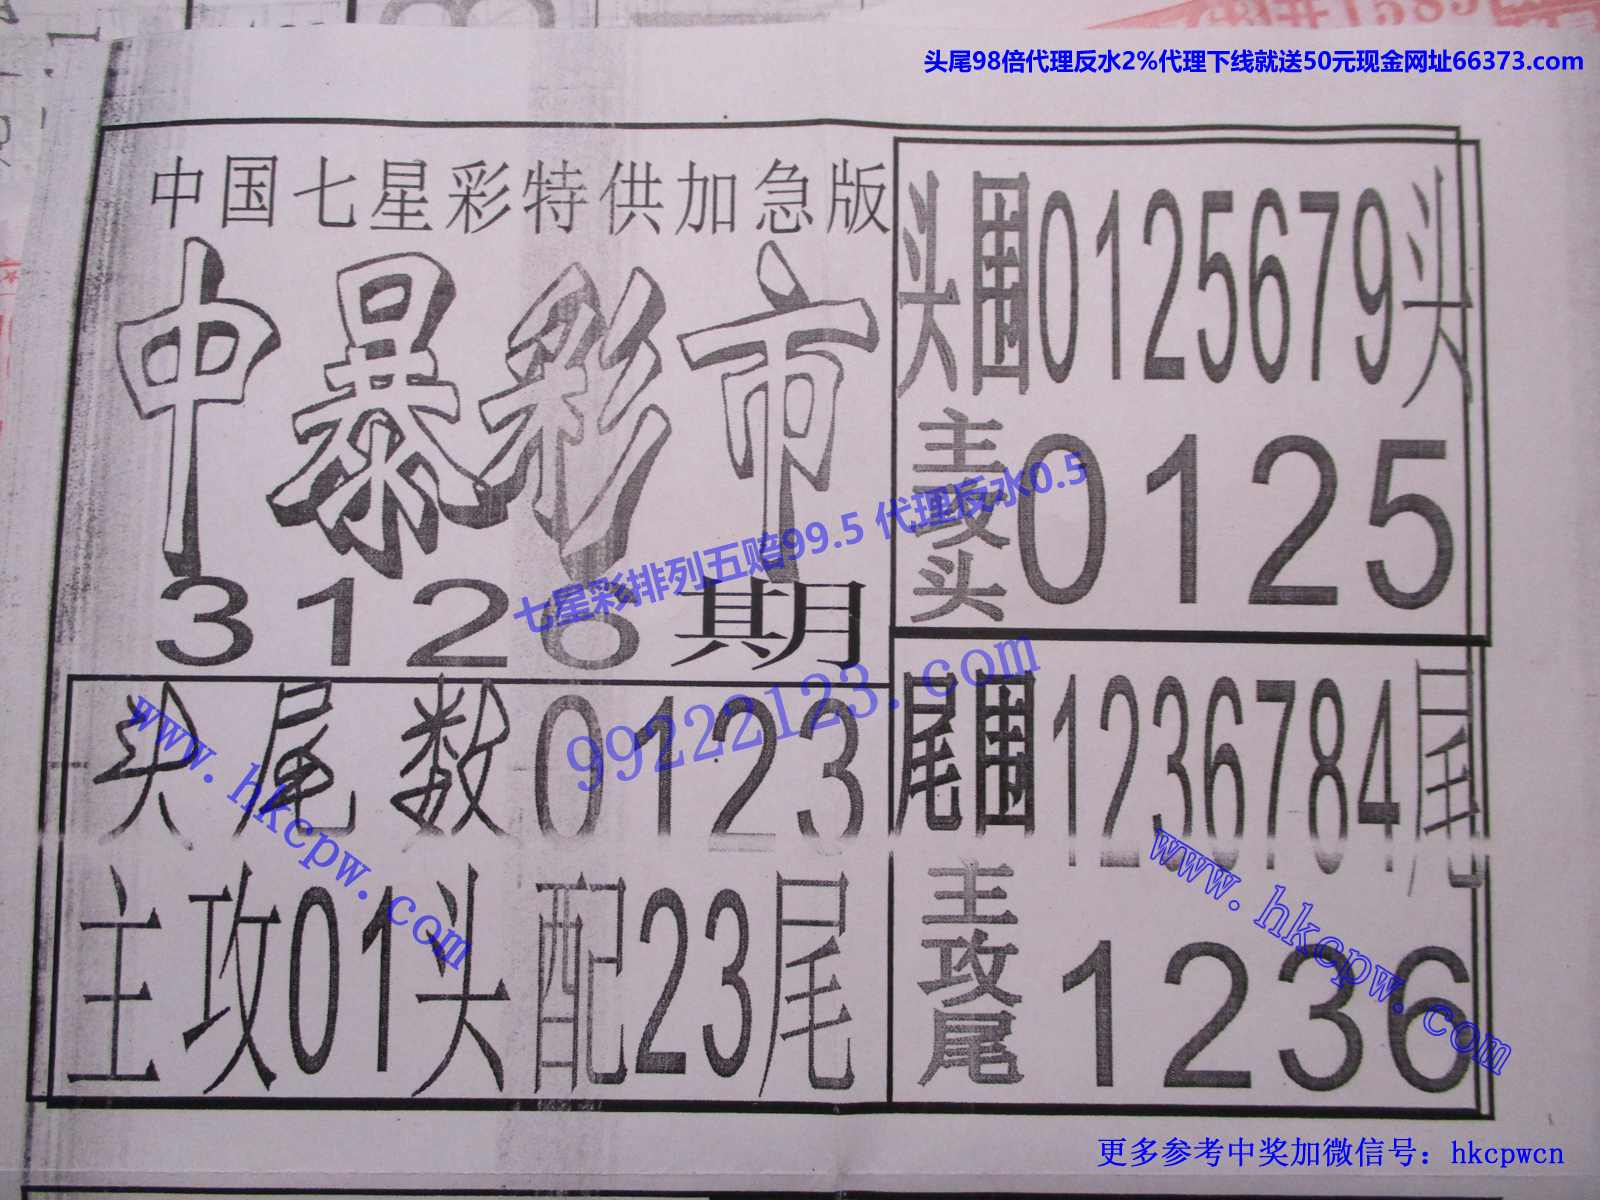 头尾98倍代理反水2%代理下线就送50元现金网址66373.com
中国七星彩特供加急版
中暴彩市
3126期
头围0125679头
主攻头0125
七星彩排列五赔99.5 代理反水0.5
99222123.com
头尾数0123
主攻01头配23尾
www.hkcpw.com
尾围1236784尾
主攻尾1236
www.hkcpw.com
更多参考中奖加微信号：hkcpwcn